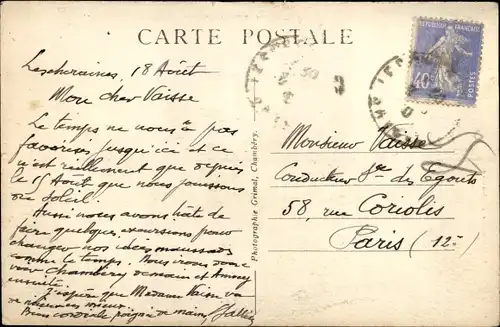 CARTE POSTALE
REPUBLIQUE FRANCAISE
40c
POSTES
Lescheraines, 18 Août
Mon cher Vaisse
Le temps ne nous a pas
favorisés jusqu'ici et ce
n'est réellement que depuis
le 15 Août que nous jouissons
du soleil.
Aussi nous avons hâte de
faire quelques excursions pour
changer nos idées maussades
comme le temps. Nous irons donc
voir Chambéry demain et Annecy
ensuite.
J'espère que Madame Vaisse va
de mieux en mieux.
Bien cordiale poignée de main,
Photographie Grimal, Chambéry.
Monsieur Vaisse
Conducteur des Egouts
58, rue Coriolis
Paris (12e)